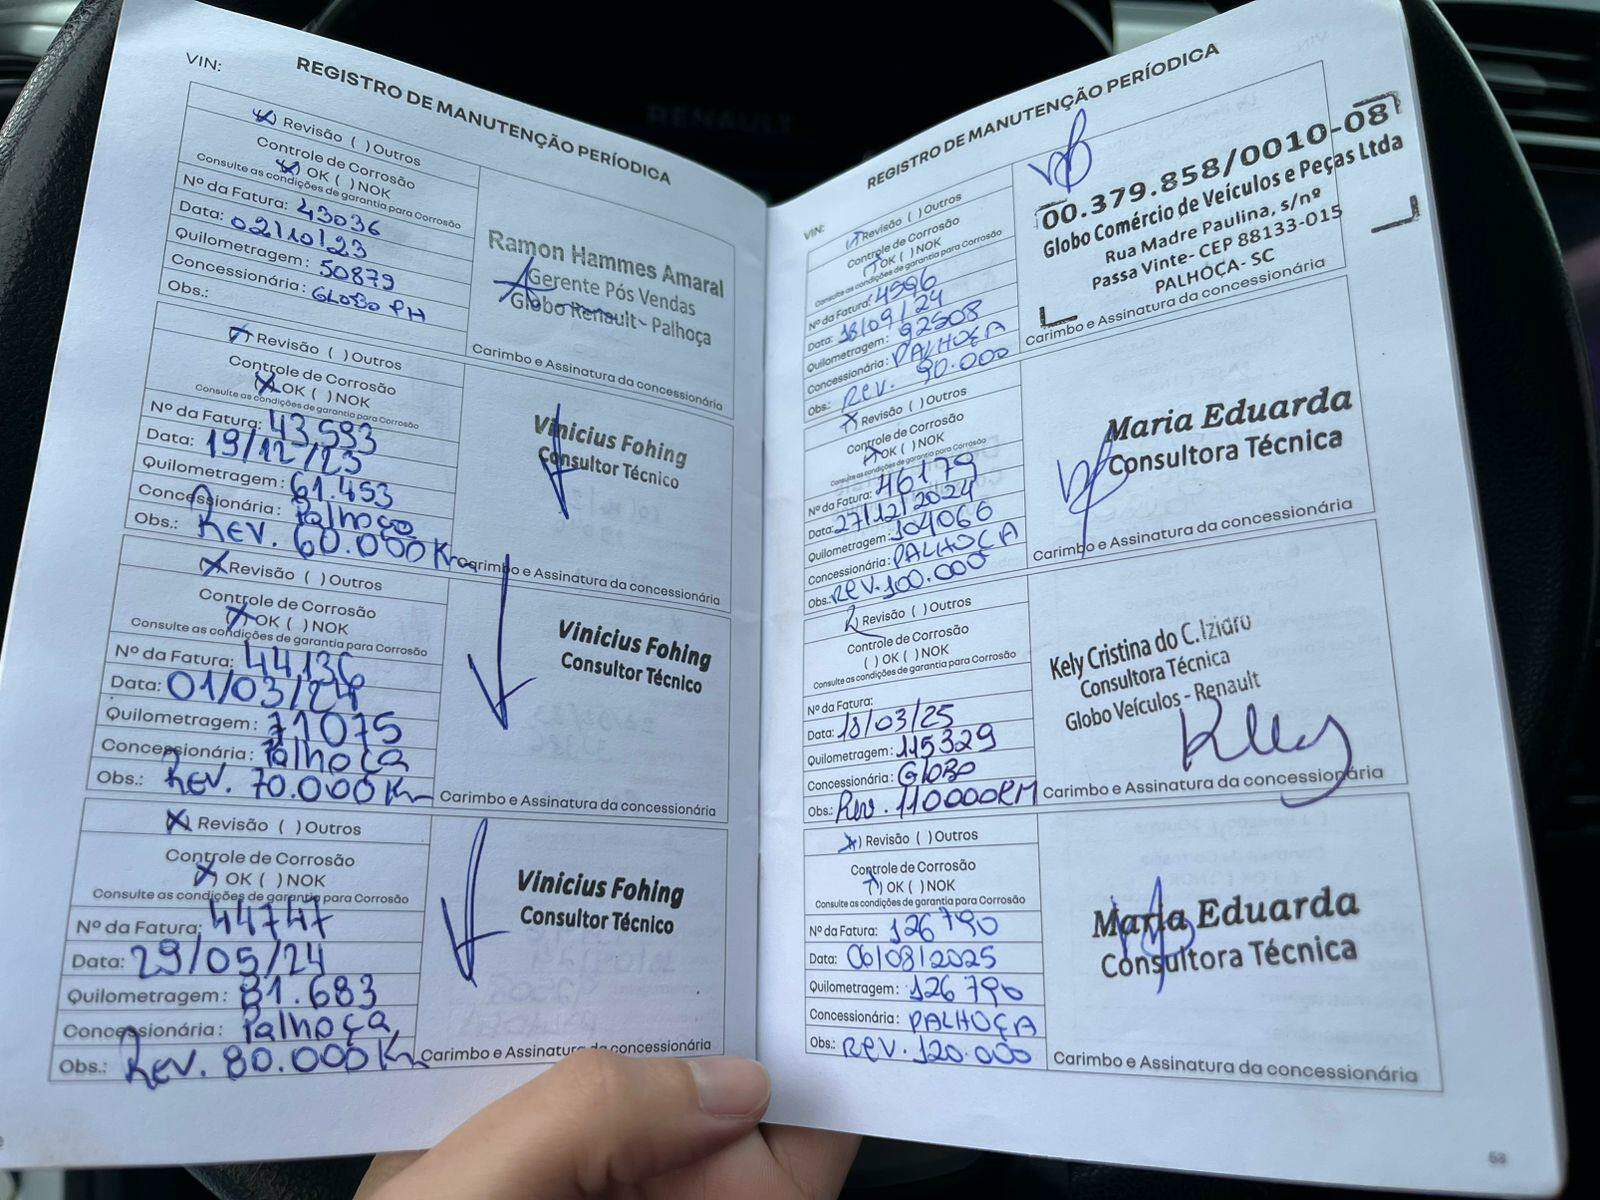 RENAULT
VIN:
REGISTRO DE MANUTENÇÃO PERÍODICA
(x) Revisão ( ) Outros
Controle de Corrosão
(x) OK ( ) NOK
Consulte as condições de garantia para Corrosão
Nº da Fatura: 43036
Data: 02/10/23
Quilometragem: 50879
Concessionária: GLOBO PH
Obs.:
Ramon Hammes Amaral
Gerente Pós Vendas
Globo Renault - Palhoça
Carimbo e Assinatura da concessionária
(x) Revisão ( ) Outros
Controle de Corrosão
(x) OK ( ) NOK
Consulte as condições de garantia para Corrosão
Nº da Fatura: 43593
Data: 19/12/23
Quilometragem: 61.453
Concessionária: Palhoça
Obs.: Rev. 60.000 Km
Vinicius Fohing
Consultor Técnico
Carimbo e Assinatura da concessionária
(x) Revisão ( ) Outros
Controle de Corrosão
(x) OK ( ) NOK
Consulte as condições de garantia para Corrosão
Nº da Fatura: 44136
Data: 01/03/24
Quilometragem: 71075
Concessionária: Palhoça
Obs.: Rev. 70.000 Km
Vinicius Fohing
Consultor Técnico
Carimbo e Assinatura da concessionária
(x) Revisão ( ) Outros
Controle de Corrosão
(x) OK ( ) NOK
Consulte as condições de garantia para Corrosão
Nº da Fatura: 44747
Data: 29/05/24
Quilometragem: 81.683
Concessionária: Palhoça
Obs.: Rev. 80.000 Km
Vinicius Fohing
Consultor Técnico
Carimbo e Assinatura da concessionária
VIN:
REGISTRO DE MANUTENÇÃO PERÍODICA
(x) Revisão ( ) Outros
Controle de Corrosão
(x) OK ( ) NOK
Consulte as condições de garantia para Corrosão
Nº da Fatura: 4596
Data: 18/09/24
Quilometragem: 92508
Concessionária: PALHOÇA
Obs.: Rev. 90.000
00.379.858/0010-08
Globo Comércio de Veículos e Peças Ltda
Rua Madre Paulina, s/nº
Passa Vinte- CEP 88133-015
PALHOÇA- SC
Carimbo e Assinatura da concessionária
(x) Revisão ( ) Outros
Controle de Corrosão
(x) OK ( ) NOK
Consulte as condições de garantia para Corrosão
Nº da Fatura: 46179
Data: 27/12/2024
Quilometragem: 104066
Concessionária: PALHOÇA
Obs.: Rev. 100.000
Maria Eduarda
Consultora Técnica
Carimbo e Assinatura da concessionária
(x) Revisão ( ) Outros
Controle de Corrosão
( ) OK ( ) NOK
Consulte as condições de garantia para Corrosão
Nº da Fatura:
Data: 18/03/25
Quilometragem: 115329
Concessionária: GlOBO
Obs.: Rev. 110000KM
Kely Cristina do C. Izidro
Consultora Técnica
Globo Veículos - Renault
Kelly
Carimbo e Assinatura da concessionária
(x) Revisão ( ) Outros
Controle de Corrosão
(x) OK ( ) NOK
Consulte as condições de garantia para Corrosão
Nº da Fatura: 126790
Data: 06/08/2025
Quilometragem: 126790
Concessionária: PALHOÇA
Obs.: Rev. 120.000
Maria Eduarda
Consultora Técnica
Carimbo e Assinatura da concessionária
53